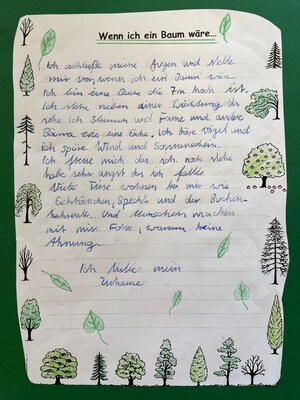 Wenn ich ein Baum wäre...
Ich schließe meine Augen und stelle
mir vor, wenn ich ein Baum wär...
Ich bin eine Eiche die 7m hoch ist.
Ich stehe neben einer Lichtung da
sehe ich Blumen und Farne und andere
Bäume wie eine Eiche. Ich höre Vögel und
ich spüre Wind und Sonnenschein.
Ich freue mich das ich noch stehe
habe sehr angst das ich falle
Viele Tiere wohnen bei mir wie
Eichhörnchen, Specht und der
Und Menschen machen
mit mir Fotos, warum keine
Ahnung.
Ich liebe mein
Zuhause